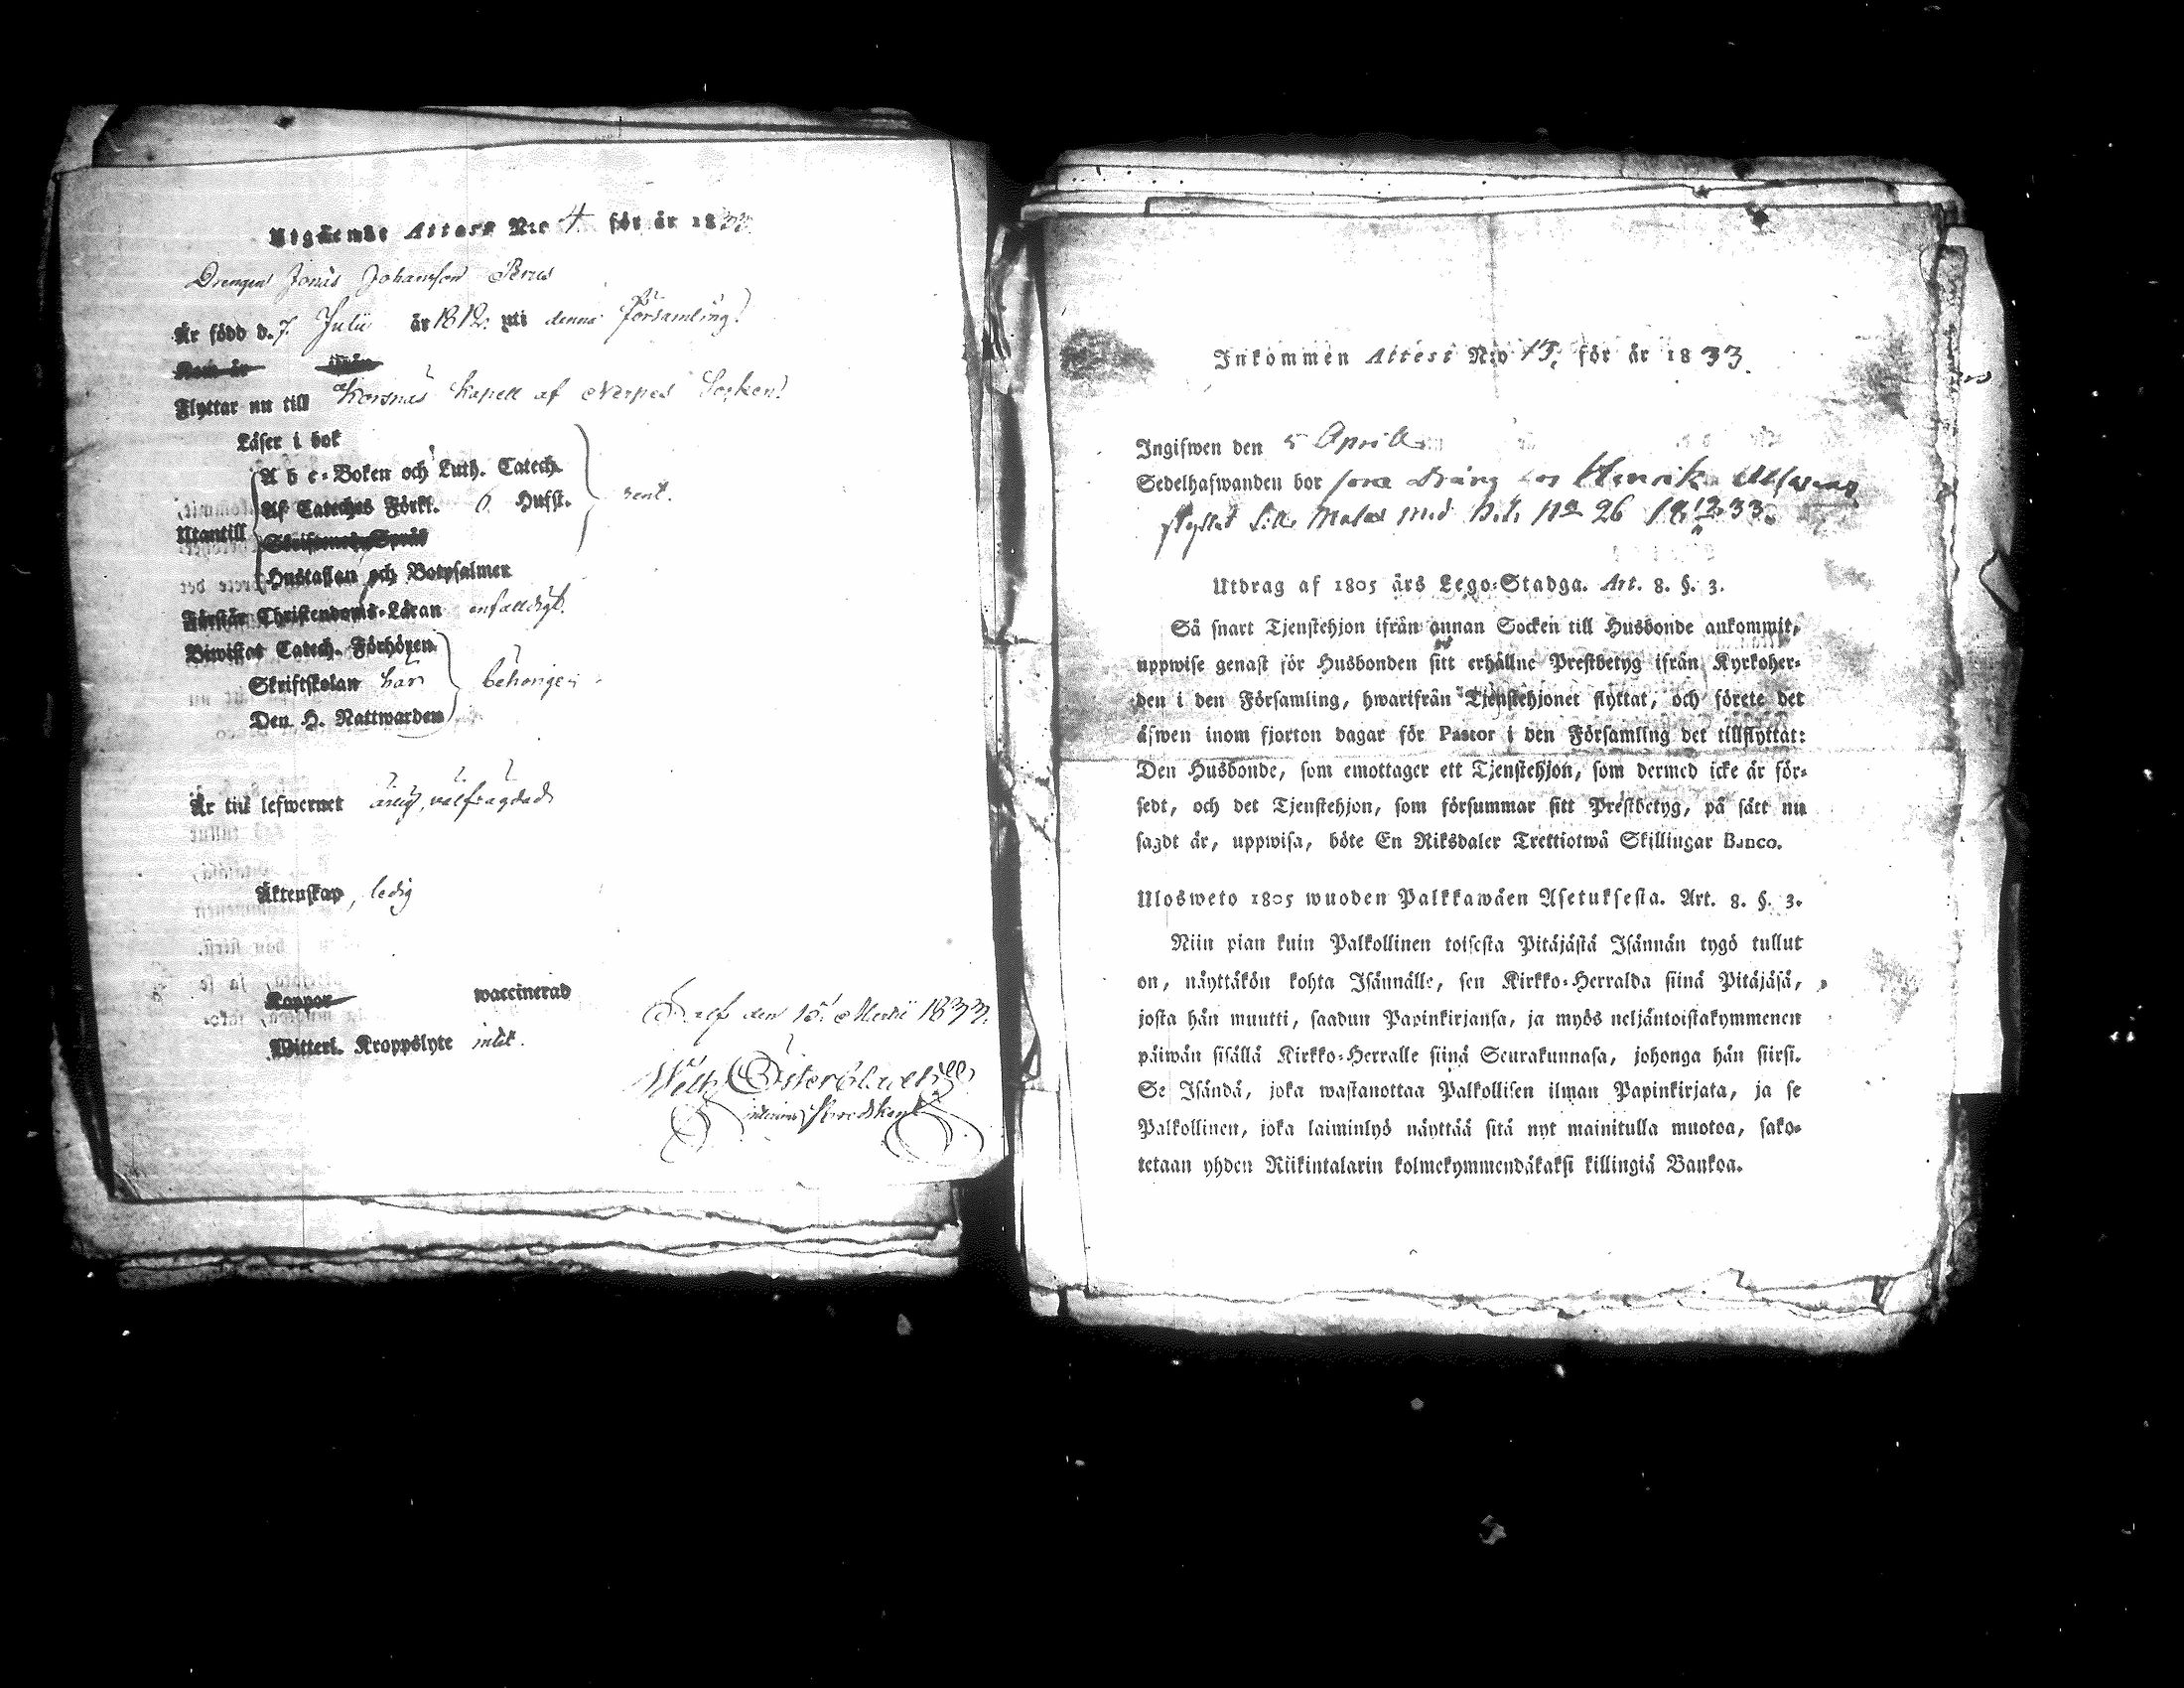 Utgående Attest N:o 4. för år 1833.
Drengen Jonas Johansson
Är född d. 7. Julii år 1812. uti denna Församling.
Som är ifrån
Flyttar nu till Korsnäs Kapell af Nerpes Socken.
Läser i bok
A b c-Boken och Luth. Catech.
Af Cateches Förkl. 6 Hufst. rent.
Utantill
Skriftenes Språk
Hustaflan och Botpsalmer
Förstår Christendoms-Läran enfaldigt.
Biwistat Catech. Förhören
Skriftskolan har behörigen
Den H. Nattwarden
Är till lefwernet ärlig, välfrägdad
Äktenskap, ledig
Koppor waccinerad
Witterl. Kroppslyte intet.
den 15 Martii 1833.
Wilh. Österblad
Inkommen Attest N:o 15, för år 1833.
Ingifwen den 5 April
Sedelhafwanden bor som Dräng hos Henrik
flyttat till Malax med No 26 1833.
Utdrag af 1805 års Lego-Stadga. Art. 8. §. 3.
Så snart Tjenstehjon ifrån annan Socken till Husbonde ankommit,
uppwise genast för Husbonden sitt erhållne Prestbetyg ifrån Kyrkoher-
den i den Församling, hwarifrån Tjenstehjonet flyttat, och förete det
äfwen inom fjorton dagar för Pastor i den Församling det tillflyttat:
Den Husbonde, som emottager ett Tjenstehjon, som dermed icke är för-
sedt, och det Tjenstehjon, som försummar sitt Prestbetyg, på sätt nu
sagdt är, uppwisa, böte En Riksdaler Trettiotwå Skillingar Banco.
Ulosweto 1805 wuoden Palkkawäen Asetuksesta. Art. 8. §. 3.
Niin pian kuin Palkollinen toisesta Pitäjästä Isännän tygö tullut
on, näyttäkön kohta Isännälle, sen Kirkko-Herralda siinä Pitäjäsä,
josta hän muutti, saadun Papinkirjansa, ja myös neljäntoistakymmenen
päiwän sisällä Kirkko-Herralle siinä Seurakunnasa, johonga hän siirsi.
Se Isändä, joka wastanottaa Palkollisen ilman Papinkirjata, ja se
Palkollinen, joka laiminlyö näyttää sitä nyt mainitulla muotoa, sako-
tetaan yhden Riikintalarin kolmekymmendäkaksi killingiä Bankoa.